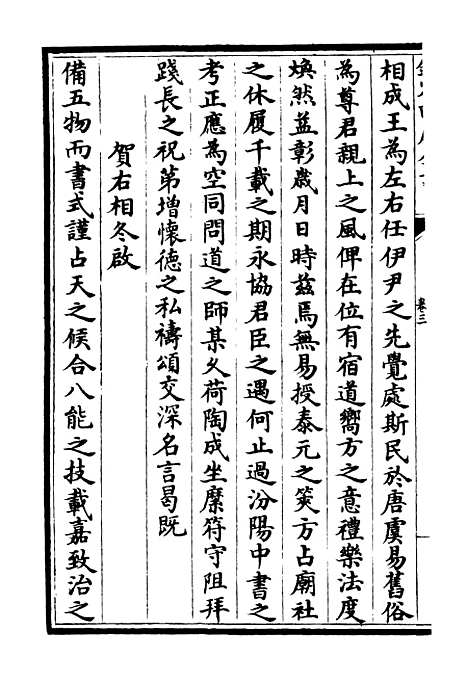 卷三
相成王為左右任伊尹之先覺處斯民於唐虞易舊俗
為尊君親上之風俾在位有宿道嚮方之意禮樂法度
煥然益彰歲月日時茲焉無易授泰元之筴方占廟社
之休履千載之期永協君臣之遇何止過汾陽中書之
考正應為空同問道之師某久荷陶成坐縻符守阻拜
踐長之祝第增懷德之私禱頌交深名言曷既
賀右相冬啟
備五物而書式謹占天之候合八能之技載嘉致治之